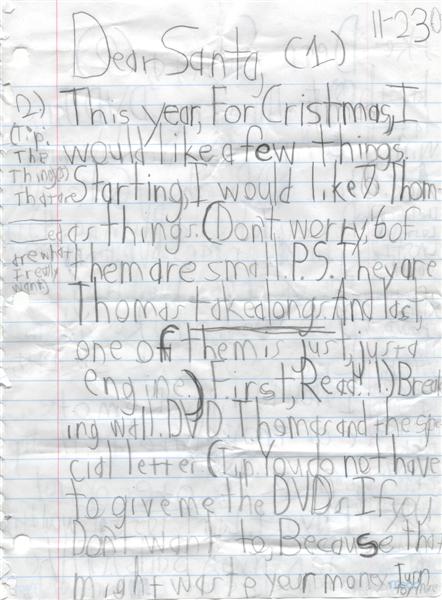 11-230
Dear Santa, (1)
This year, For Cristmas, I
would like a few things.
Starting, I would like 7 Thom
as things. (Don't worry, 6 of
them are small. P.S. They are
Thomas takealongs. And last,
one of them is just, just a
engine.) First, Ready! 1.) Break
ing wall. DVD. Thomas and the spe
cial letter (Tip. You do not have
to give me the DVDs If you
Don't want to, Because that
might waste your money. Turn
2)
(Tip.
The
Thing(s)
That are
are what
I really
want)